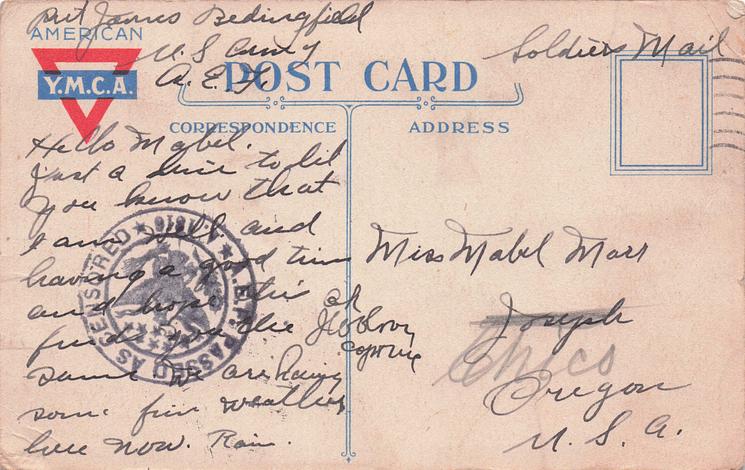 Pvt James Bedingfield
U.S Army
A.E.F.
Soldiers Mail
AMERICAN
Y.M.C.A.
POST CARD
CORRESPONDENCE
ADDRESS
Hello Mabel.
Just a line to let
you know that
I am well and
having a good time
and hope this
finds you the
same we are having
some fine weather
here now. Rain.
A.E.F. PASSED AS CENSORED
OK
Miss Mabel Marr
Joseph
Chico
Oregon
U.S.A.